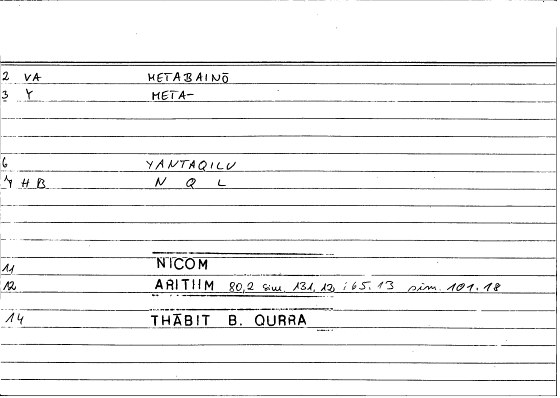 2 VA METABAINŌ
3 Y META-
6 YANTAQILU
H B N Q L
11 NICOM
12 ARITIIM 80,2 sim. 131.12; 65.13 sim. 101.18
14 THĀBIT B. QURRA